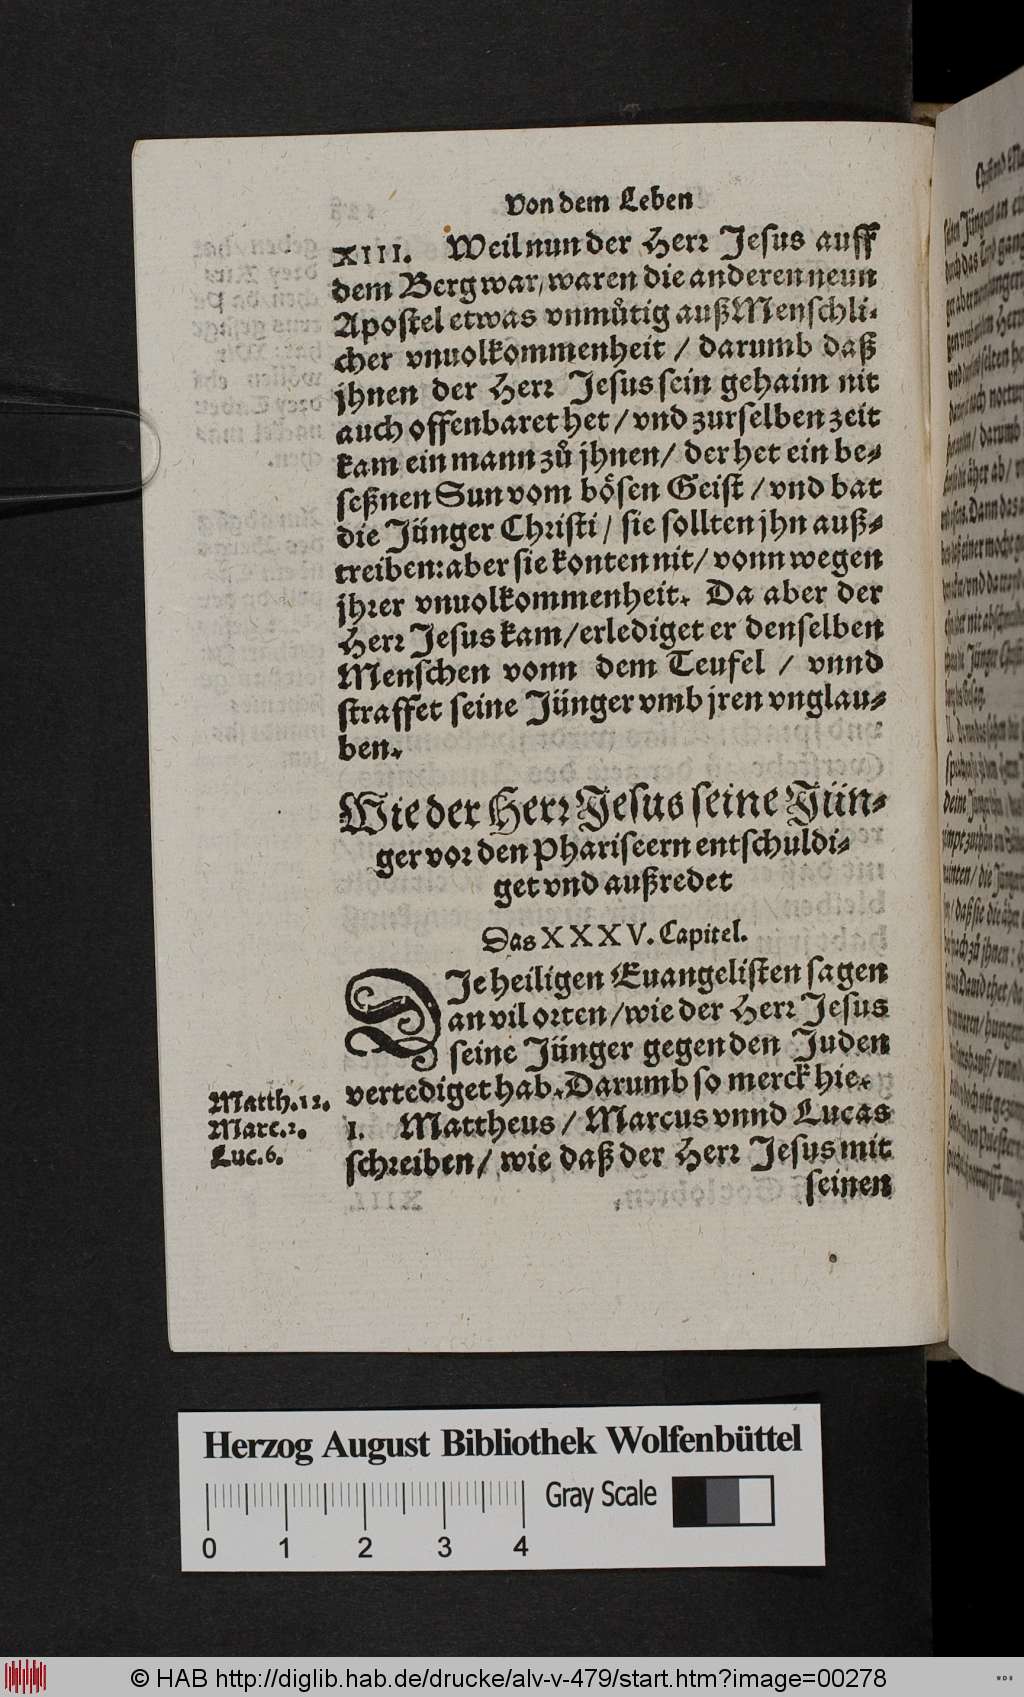 Von dem Leben
XIII. Weil nun der Herr Jesus auff
dem Berg war / waren die anderen neun
Apostel etwas vnmůtig auß Menschli-
cher vnuolkommenheit / darumb daß
jhnen der Herr Jesus sein gehaim nit
auch offenbaret het / vnd zur selben zeit
kam ein mann zů jhnen / der het ein be-
seßnen Sun vom bösen Geist / vnd bat
die Jünger Christi / sie sollten jhn auß-
treiben: aber sie konten nit / vonn wegen
jhrer vnuolkommenheit. Da aber der
Herr Jesus kam / erlediget er denselben
Menschen vonn dem Teufel / vnnd
straffet seine Jünger vmb jren vnglau-
ben.
Wie der Herr Jesus seine Jün-
ger vor den Phariseern entschuldi-
get vnd außredet
Das XXXV. Capitel.
DJe heiligen Euangelisten sagen
an vil orten / wie der Herr Jesus
seine Jünger gegen den Juden
vertediget hab. Darumb so merck hie.
Matth. 12.
Marc. 2.
Luc. 6.
I. Mattheus / Marcus vnnd Lucas
schreiben / wie daß der Herr Jesus mit
seinen
Herzog August Bibliothek Wolfenbüttel
Gray Scale
0 1 2 3 4
© HAB http://diglib.hab.de/drucke/alv-v-479/start.htm?image=00278